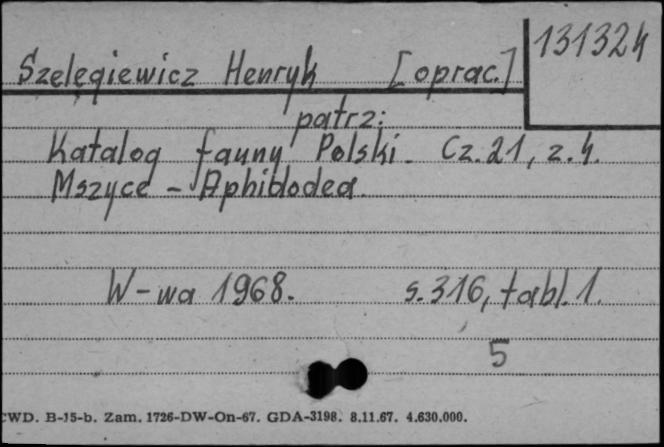 131324
Szelęgiewicz Henryk [oprac.]
patrz:
Katalog fauny Polski. Cz. 21, z. 4.
Mszyce - Aphidodea.
W-wa 1968. s. 316, tabl. 1.
5
CWD. B-15-b. Zam. 1726-DW-On-67. GDA-3198. 8.11.67. 4.630.000.